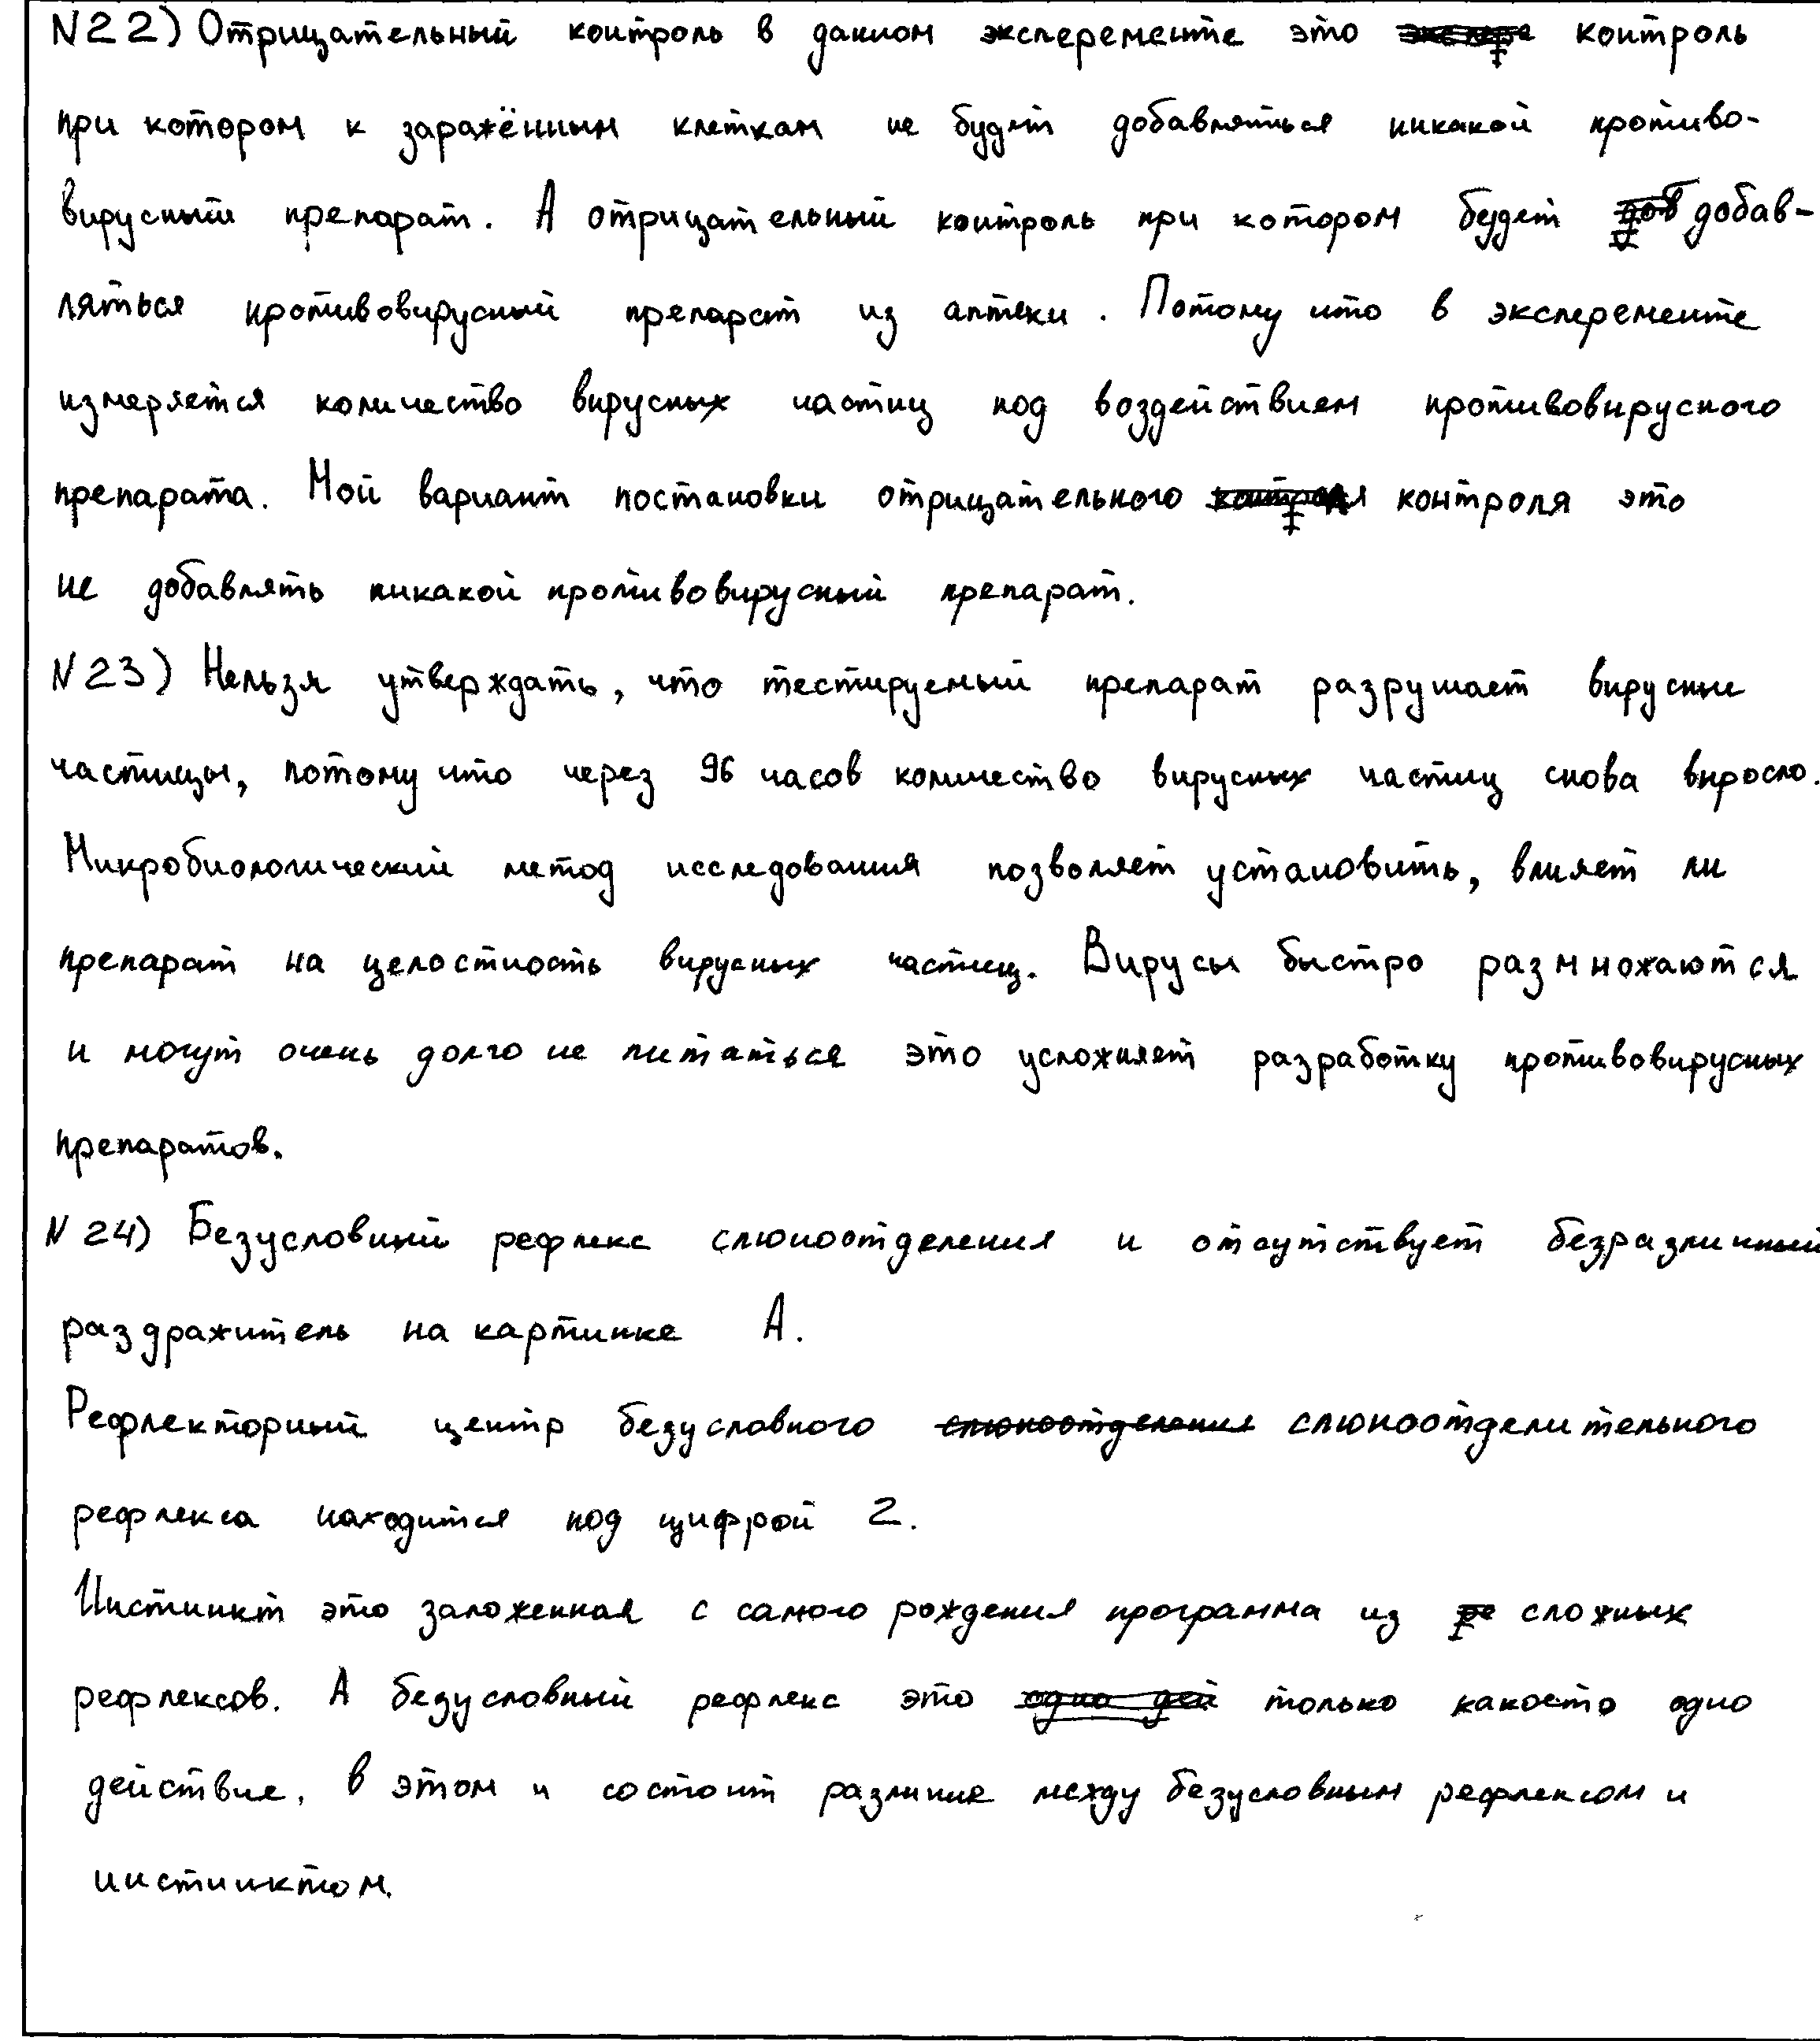 N22) Отрицательный контроль в данном эксперементе это контроль
при котором к заражённым клеткам не будет добавляться никакой противо-
вирусный препарат. А отрицательный контроль при котором будет добав-
ляться противовирусный препарат из аптеки. Потому что в эксперементе
измеряется количество вирусных частиц под воздействием противовирусного
препарата. Мой вариант постановки отрицательного контроля это
не добавлять никакой противовирусный препарат.
N23) Нельзя утверждать, что тестируемый препарат разрушает вирусные
частицы, потому что через 96 часов количество вирусных частиц снова выросло.
Микробиологический метод исследования позволяет установить, влияет ли
препарат на целостность вирусных частиц. Вирусы быстро размножаются
и могут очень долго не питаться это усложняет разработку противовирусных
препаратов.
N 24) Безусловный рефлекс слюноотделения и отсутствует безразличный
раздражитель на картинке А.
Рефлекторный центр безусловного слюноотделительного
рефлекса находится под цифрой 2.
Инстинкт это заложенная с самого рождения программа из сложных
рефлексов. А безусловный рефлекс это только какоето одно
действие. В этом и состоит различие между безусловным рефлексом и
инстинктом.